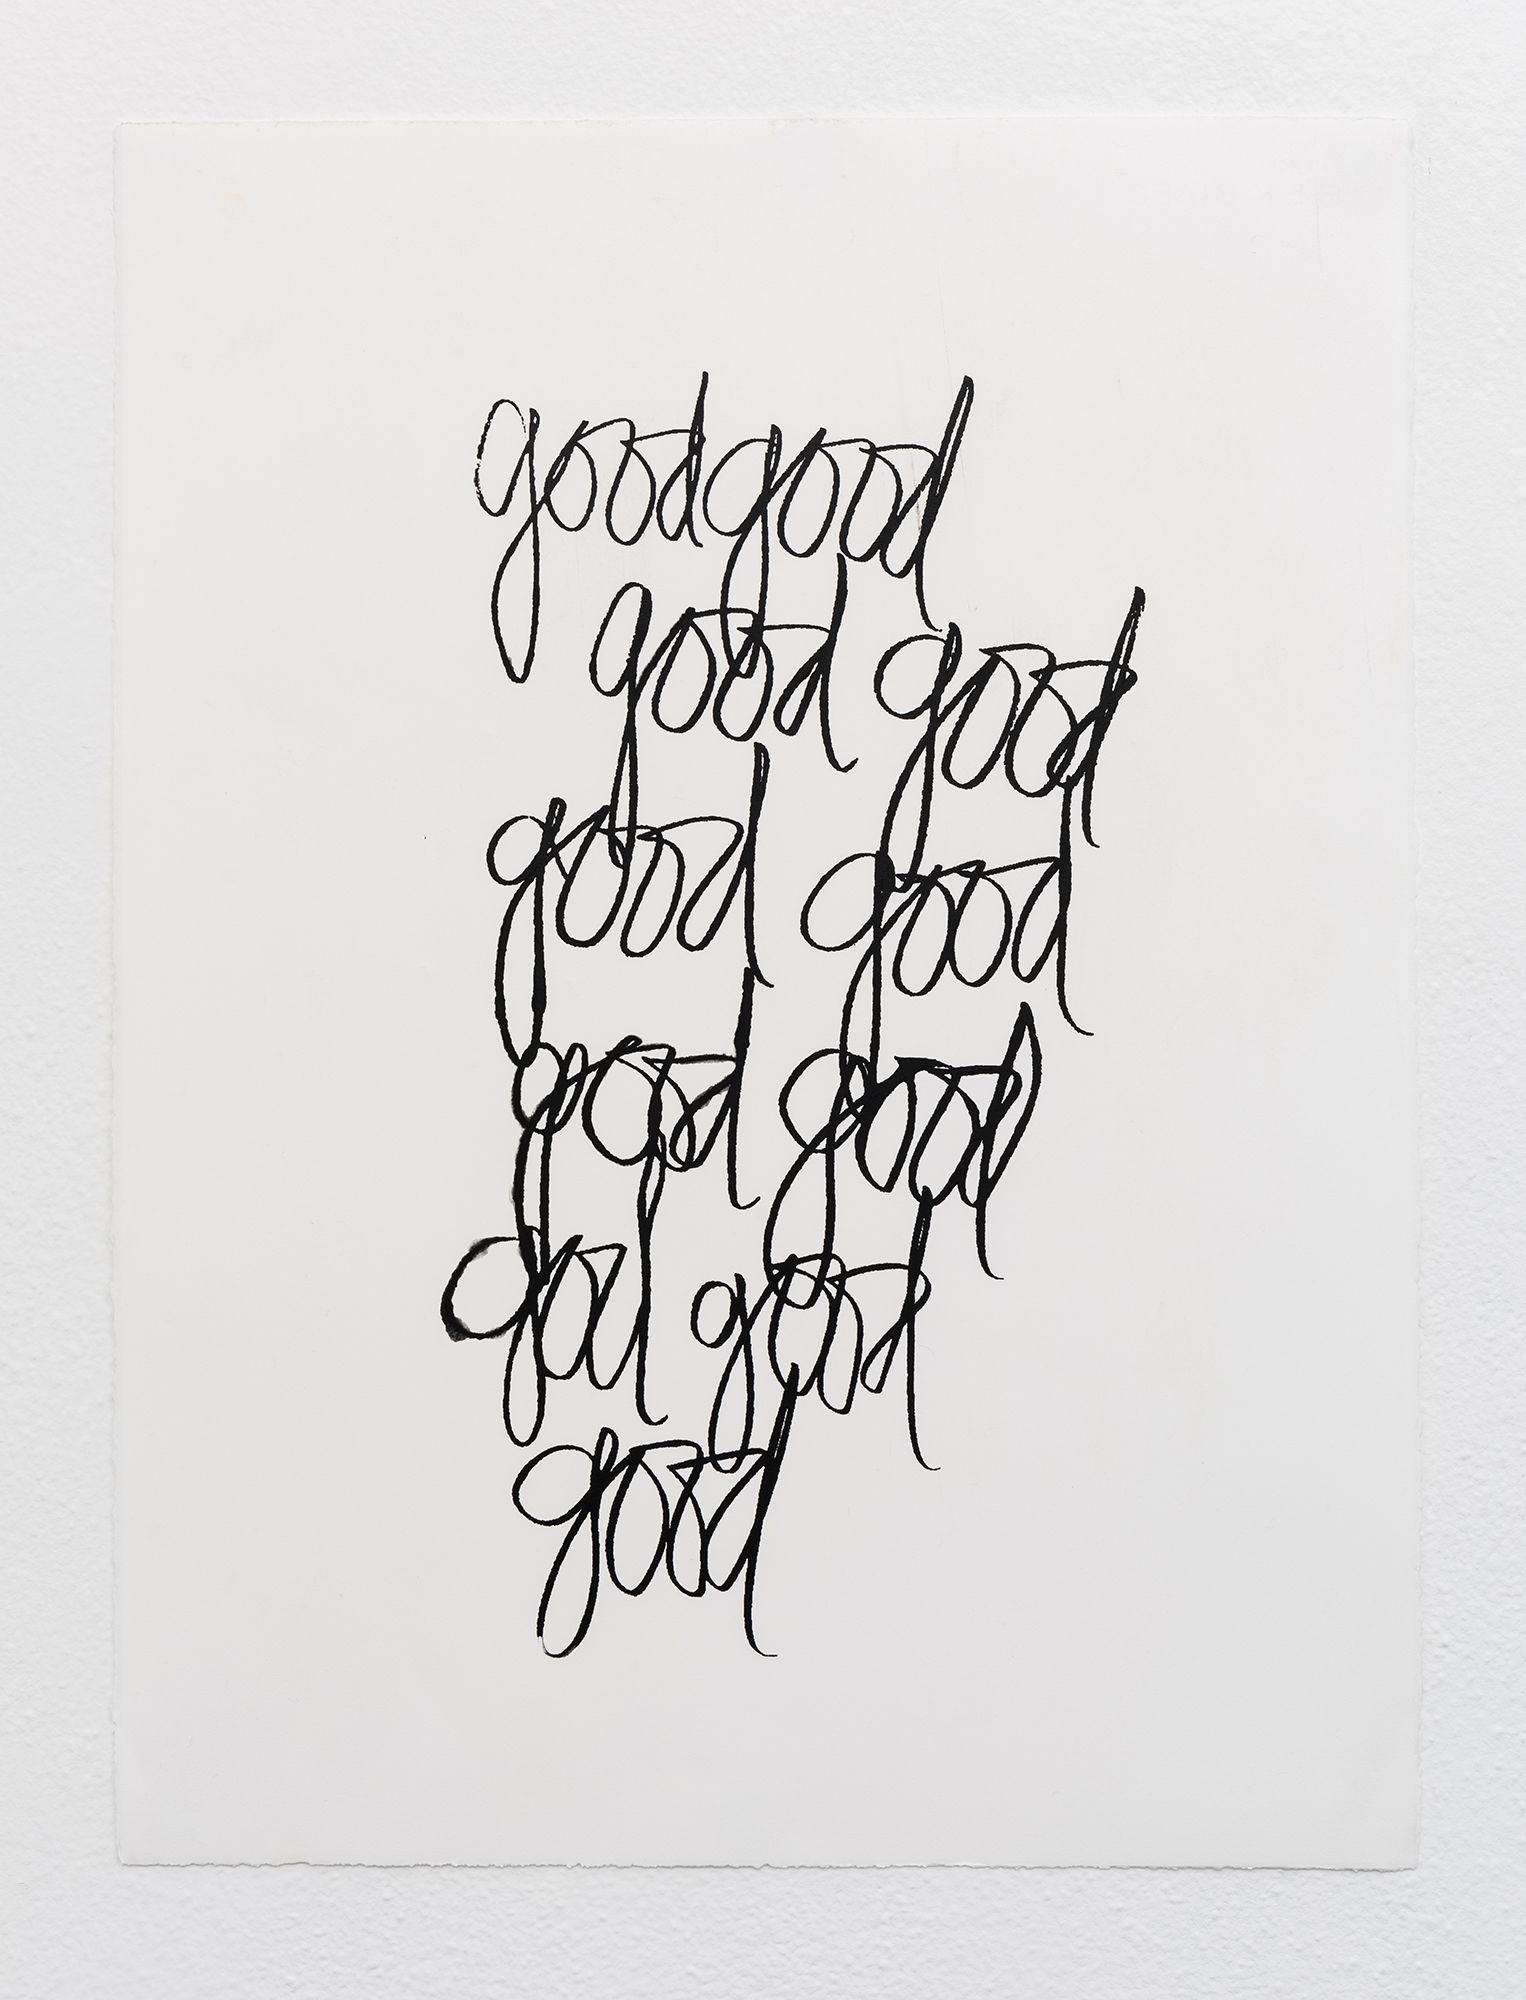 goodgood
good good
good good
good good
god good
good